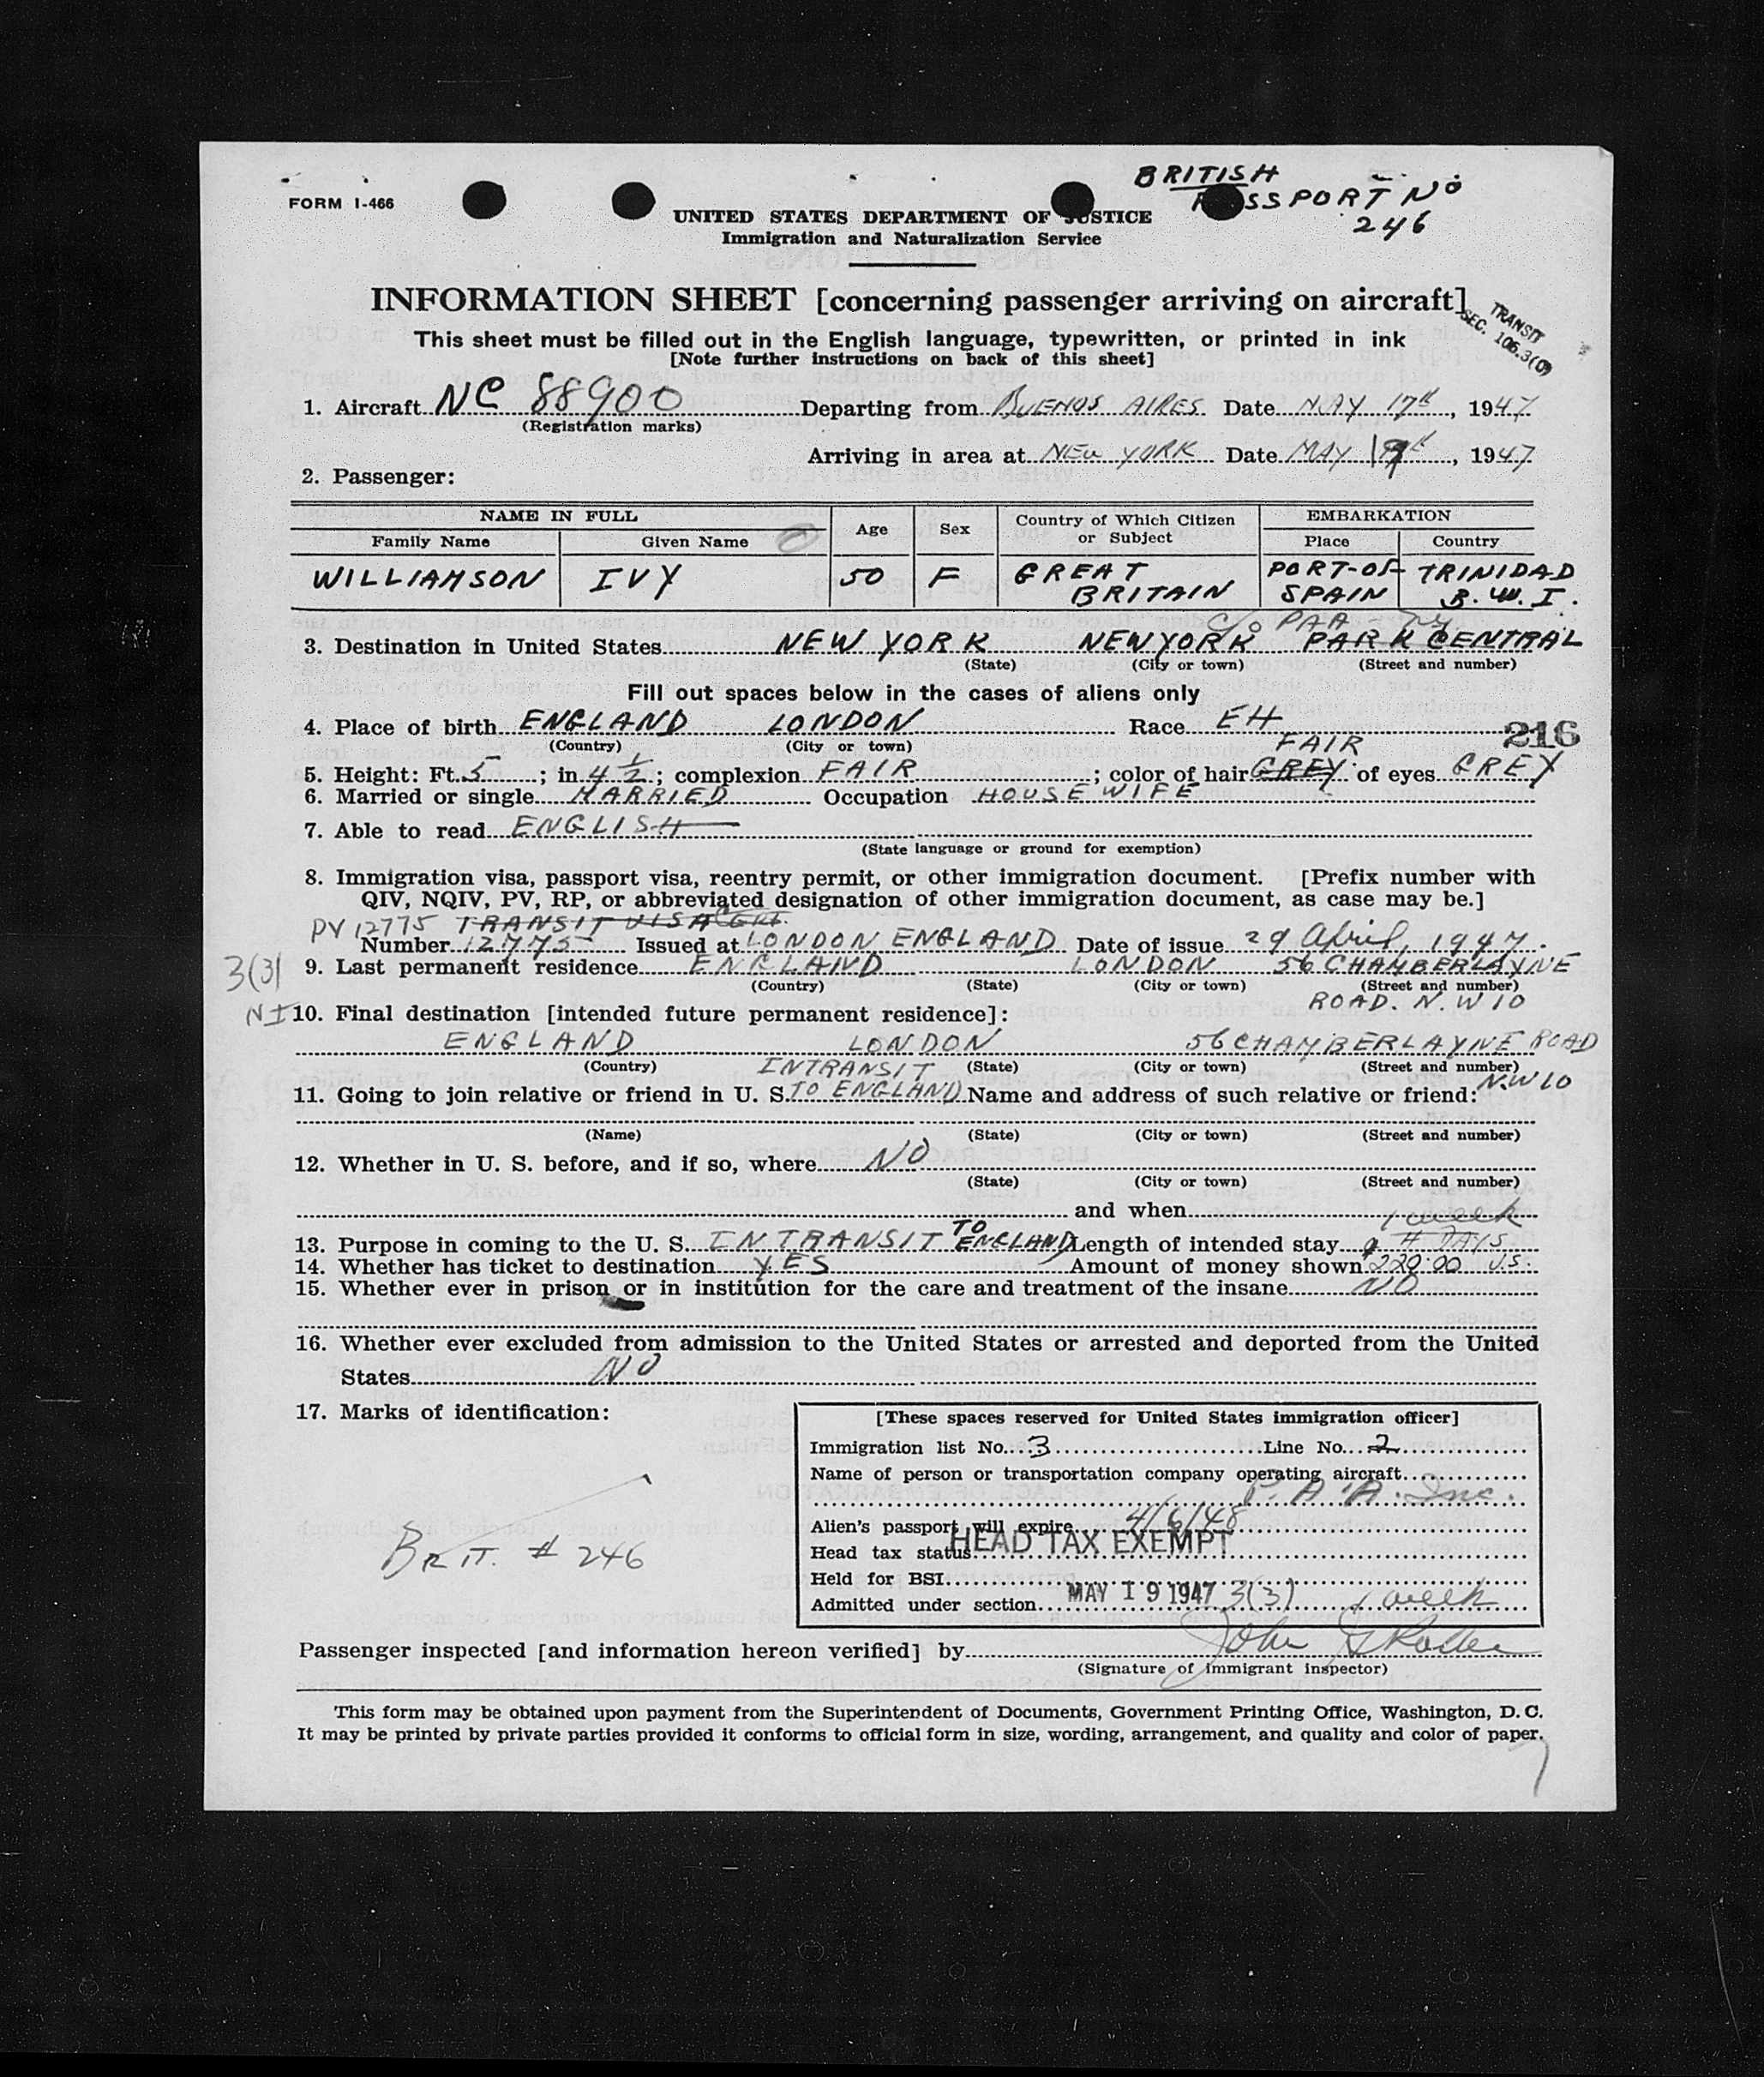 BRITISH
FORM I-466
PASSPORT No
246
UNITED STATES DEPARTMENT OF JUSTICE
Immigration and Naturalization Service
INFORMATION SHEET [concerning passenger arriving on aircraft]
TRANSIT
SEC. 106.3(0)
This sheet must be filled out in the English language, typewritten, or printed in ink
[Note further instructions on back of this sheet]
1. Aircraft NC 88900 Departing from BUENOS AIRES Date MAY 17th, 1947
(Registration marks)
Arriving in area at NEW YORK Date MAY 19th, 1947
2. Passenger:
NAME IN FULL Age Sex Country of Which Citizen or Subject EMBARKATION
Family Name Given Name Place Country
WILLIAMSON IVY 50 F GREAT PORT-OF- TRINIDAD
BRITAIN SPAIN B.W.I.
c/o PAA - NY
3. Destination in United States NEW YORK NEW YORK PARK CENTRAL
(State) (City or town) (Street and number)
Fill out spaces below in the cases of aliens only
4. Place of birth ENGLAND LONDON Race EH 216
(Country) (City or town) FAIR
5. Height: Ft. 5 ; in 4 1/2 ; complexion FAIR ; color of hair GREY of eyes GREY
6. Married or single MARRIED Occupation HOUSEWIFE
7. Able to read ENGLISH
(State language or ground for exemption)
8. Immigration visa, passport visa, reentry permit, or other immigration document. [Prefix number with
QIV, NQIV, PV, RP, or abbreviated designation of other immigration document, as case may be.]
PV 12775 TRANSIT VISA CERT.
Number 12775 Issued at LONDON ENGLAND Date of issue 29 April, 1947.
3(3) 9. Last permanent residence ENGLAND LONDON 56 CHAMBERLAYNE
(Country) (State) (City or town) (Street and number)
ROAD. N.W 10
NI 10. Final destination [intended future permanent residence]:
ENGLAND LONDON 56 CHAMBERLAYNE ROAD
(Country) INTRANSIT (State) (City or town) (Street and number)
N.W 10
11. Going to join relative or friend in U. S. TO ENGLAND Name and address of such relative or friend:
(Name) (State) (City or town) (Street and number)
12. Whether in U. S. before, and if so, where NO
(State) (City or town) (Street and number)
and when
1 week
13. Purpose in coming to the U. S. IN TRANSIT TO ENGLAND Length of intended stay 4 DAYS
14. Whether has ticket to destination YES Amount of money shown 220.00 U.S.
15. Whether ever in prison or in institution for the care and treatment of the insane NO
16. Whether ever excluded from admission to the United States or arrested and deported from the United
States NO
17. Marks of identification:
BRIT. # 246
[These spaces reserved for United States immigration officer]
Immigration list No. 3 Line No. 2
Name of person or transportation company operating aircraft
P. A. A. Inc.
Alien's passport will expire 4/6/48
Head tax status HEAD TAX EXEMPT
Held for BSI
Admitted under section MAY 19 1947 3(3) 1 week
Passenger inspected [and information hereon verified] by John
(Signature of immigrant inspector)
This form may be obtained upon payment from the Superintendent of Documents, Government Printing Office, Washington, D. C.
It may be printed by private parties provided it conforms to official form in size, wording, arrangement, and quality and color of paper.